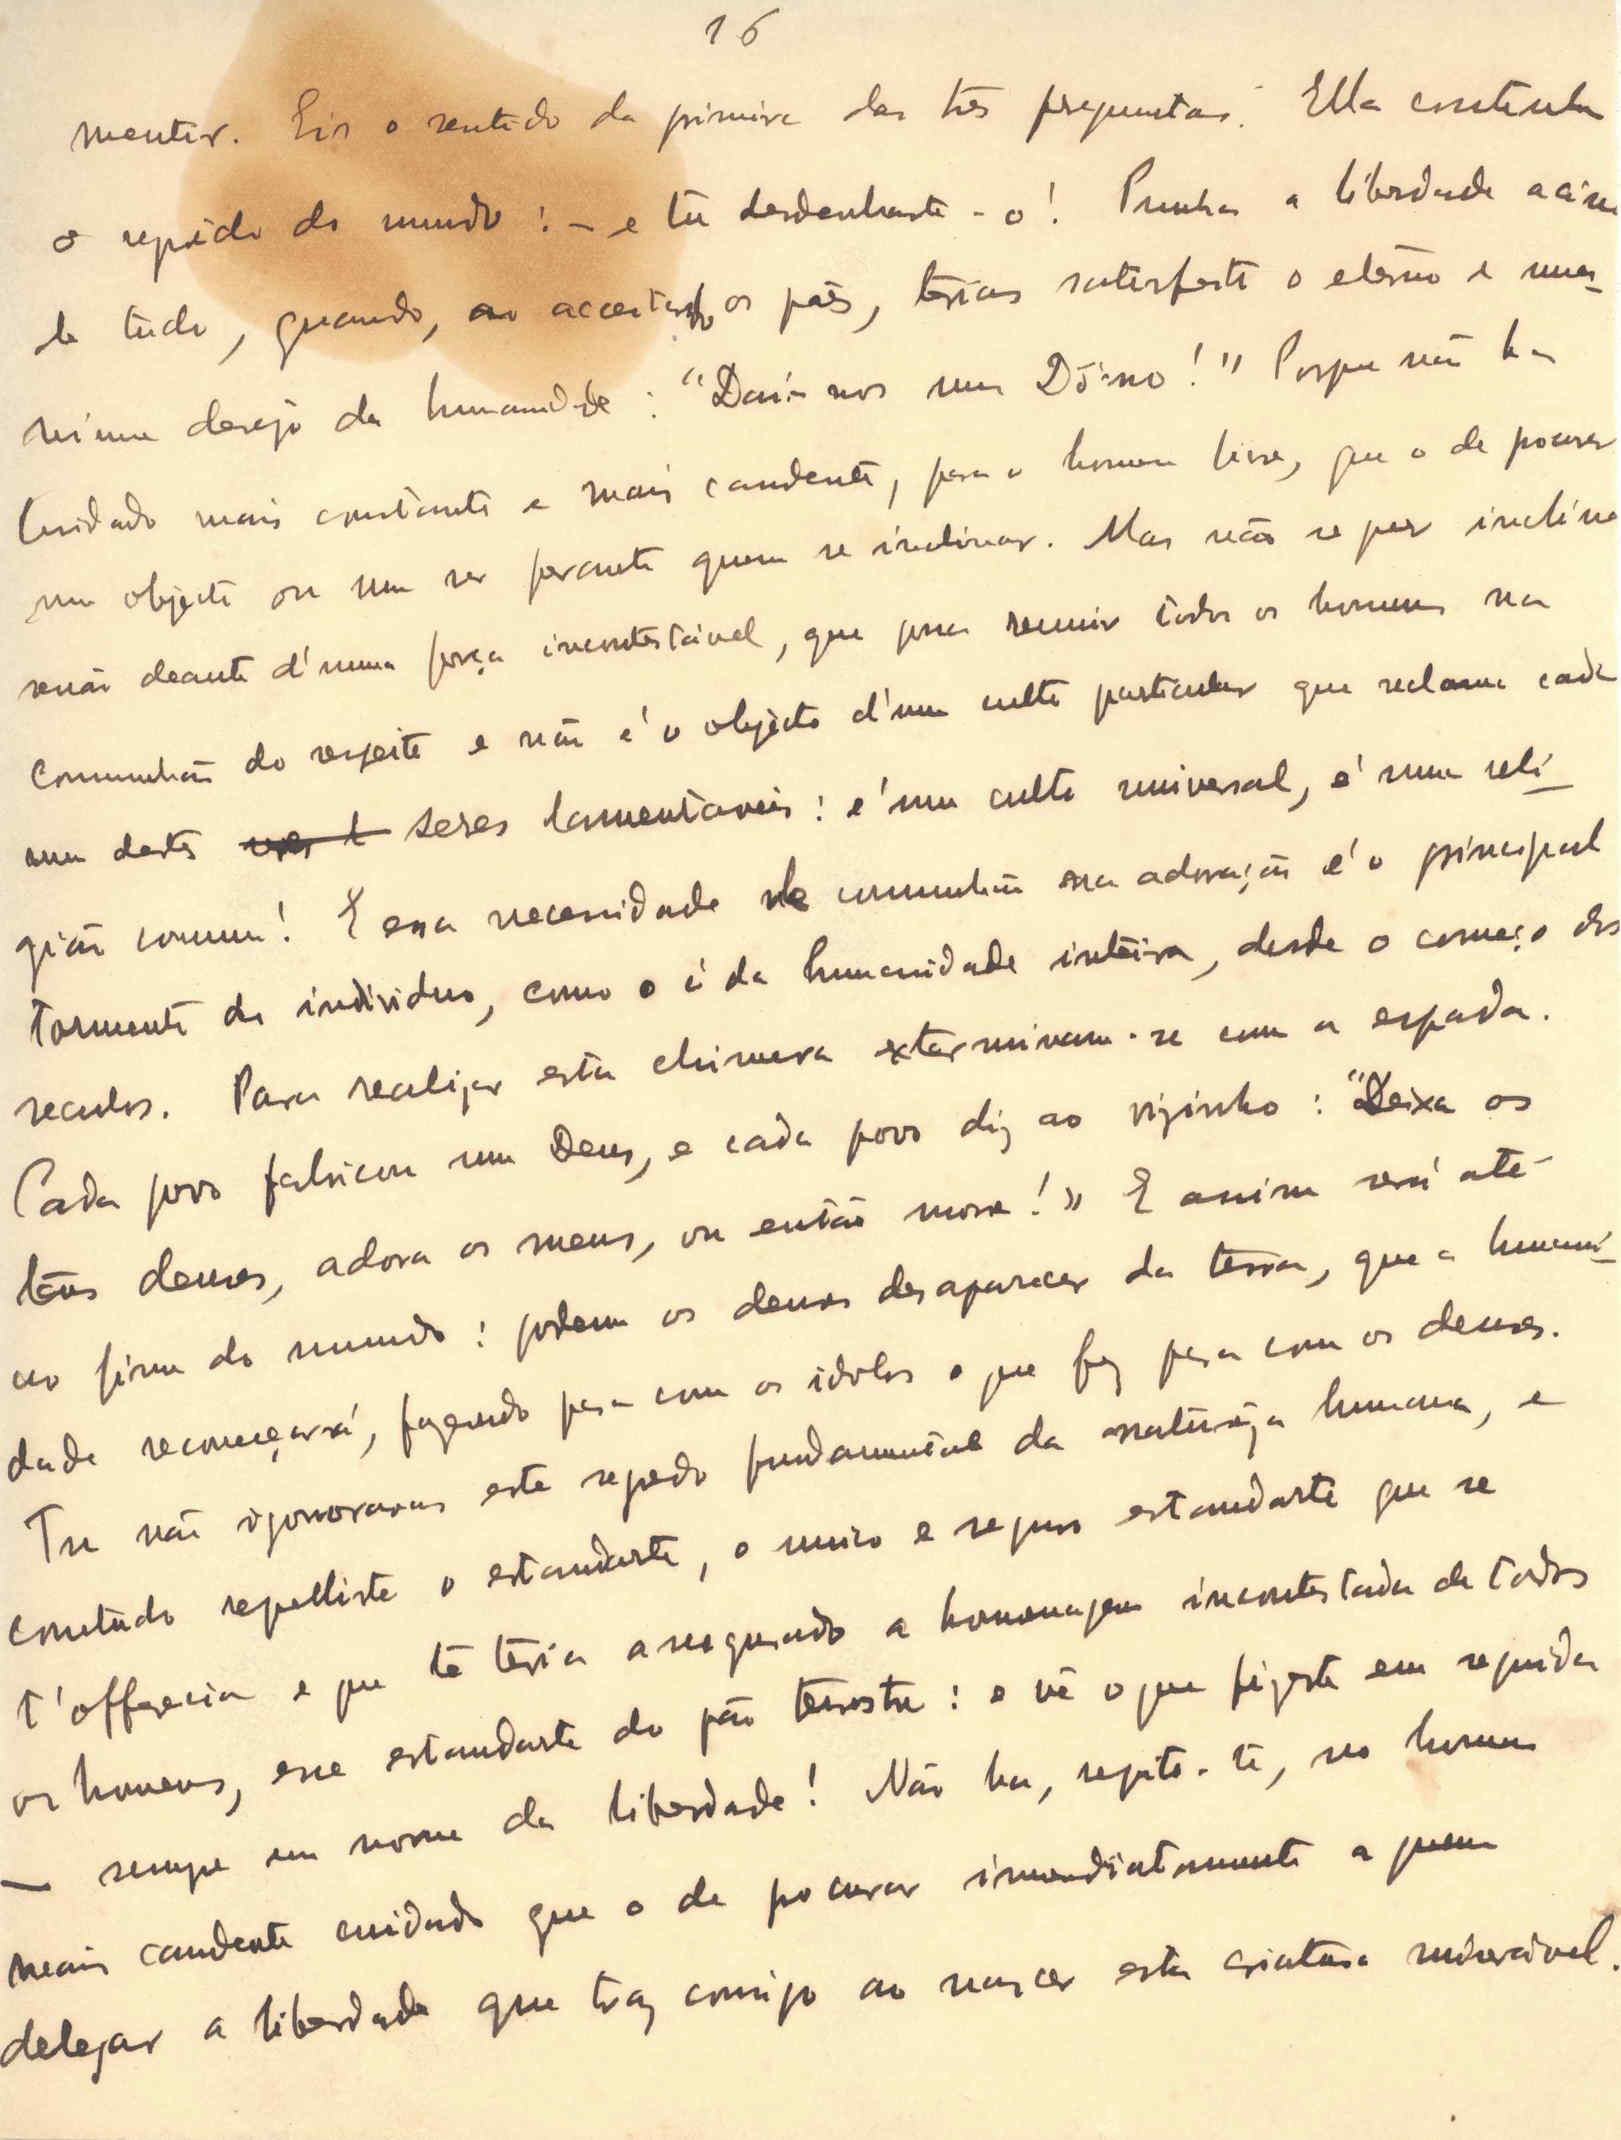 16
mentir. Eis o sentido da primeira das três preguntas. Ella continha
o segrêdo do mundo: — e tu desdenhaste-o! Punhas a liberdade acima
de tudo, quando, ao acceitando os pães, terias satisfeito o eterno e una-
nime desejo da humanidade: "Dai-nos um Dôno!" Porque não ha
cuidado mais constante e mais candente, para o homem livre, que o de pocurar
um objecto ou um ser perante quem se inclinar. Mas não se quer inclinar
senão deante d'uma força incontestável, que possa reunir todos os homens na
comunhão do respeito e não é o objecto d'um culto particular que reclama cada
um destes seres lamentaveis: é um culto universal, é uma reli-
gião comum! E essa necessidade de comunhão na adoração é o principal
tormento do individuo, como o é da humanidade inteira, desde o começo dos
seculos. Para realizar esta chimera exterminam-se com a espada.
Cada povo fabricou um Deus, e cada povo diz ao vizinho: "Deixa os
teus deuses, adora os meus, ou então morre!" E assim será até
ao fim do mundo: podem os deuses desaparecer da terra, que a humani-
dade recomeçará, fazendo para com os idolos o que fez para com os deuses.
Tu não ignoravas este segredo fundamental da naturêza humana, e
contudo repelliste o estandarte, o unico e seguro estandarte que se
t'offerecia e que te teria assegurado a homenagem incontestada de todos
os homens, esse estandarte do pão terrestre: e vê o que fizeste em seguida
— sempre em nome da liberdade! Não ha, repito-te, no homem
mais candente cuidado que o de pocurar imediatamente a quem
delegar a liberdade que traz comsigo ao nascer esta criatura miserável.